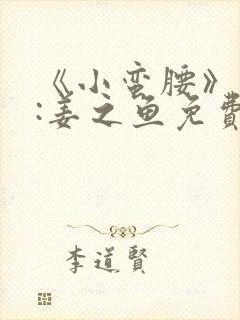 《小蛮腰》
:姜之鱼免費
李道賢